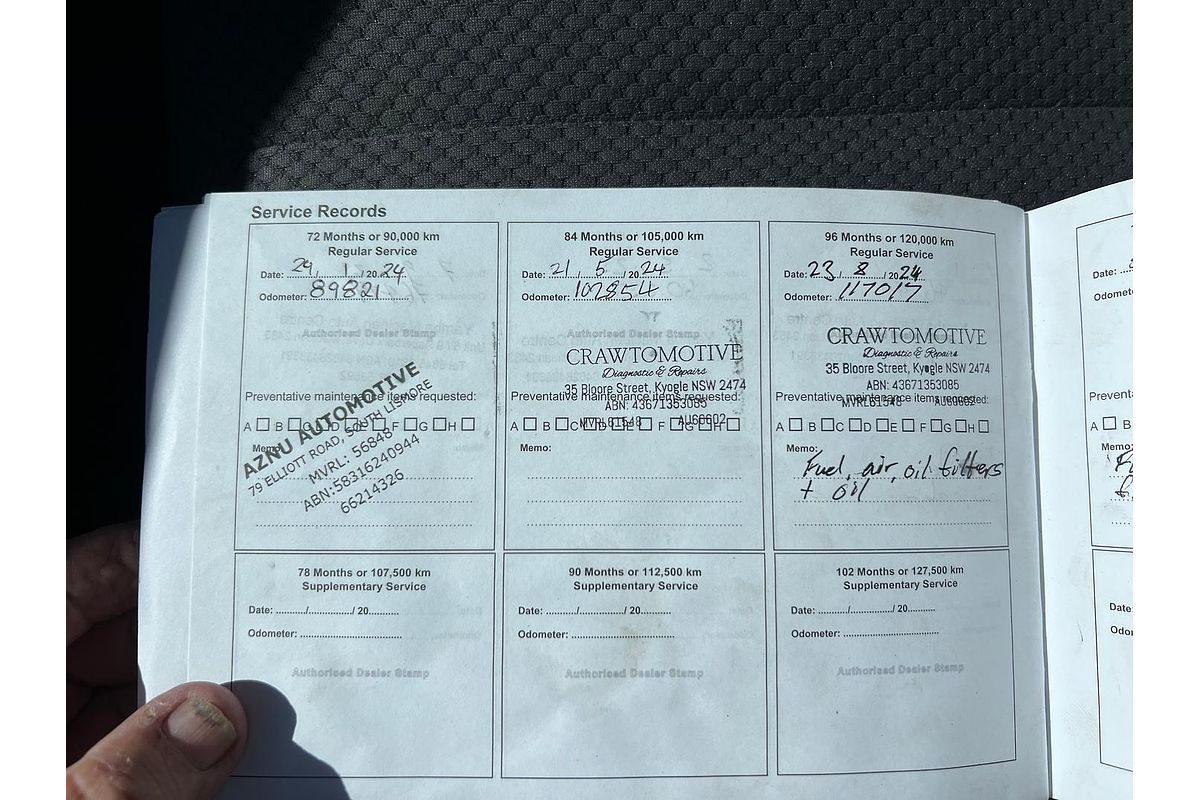 Service Records
72 Months or 90,000 km
Regular Service
Date: 29 / 1 / 20 24
Odometer: 89821
Authorised Dealer Stamp
AZNU AUTOMOTIVE
79 ELLIOTT ROAD, SOUTH LISMORE
MVRL: 56848
ABN:58316240944
66214326
Preventative maintenance items requested:
A B C D E F G H
Memo:
84 Months or 105,000 km
Regular Service
Date: 21 / 5 / 20 24
Odometer: 102854
Authorised Dealer Stamp
CRAWTOMOTIVE
Diagnostic & Repairs
35 Bloore Street, Kyogle NSW 2474
Preventative maintenance items requested:
ABN: 43671353085
MVRL61548 AU60602
A B C D E F G H
Memo:
96 Months or 120,000 km
Regular Service
Date: 23 / 8 / 20 24
Odometer: 117017
CRAWTOMOTIVE
Diagnostic & Repairs
35 Bloore Street, Kyogle NSW 2474
ABN: 43671353085
Preventative maintenance items requested:
MVRL61548 AU60602
A B C D E F G H
Memo:
Fuel, air, oil filters
+ oil
78 Months or 107,500 km
Supplementary Service
Date: ........../............../ 20..........
Odometer: ..................................
Authorised Dealer Stamp
90 Months or 112,500 km
Supplementary Service
Date: ........../............../ 20..........
Odometer: ..................................
Authorised Dealer Stamp
102 Months or 127,500 km
Supplementary Service
Date: ........../............../ 20..........
Odometer: ..................................
Authorised Dealer Stamp
Date:
Odomet
Preventa
A B
Memo:
Date:
Odo